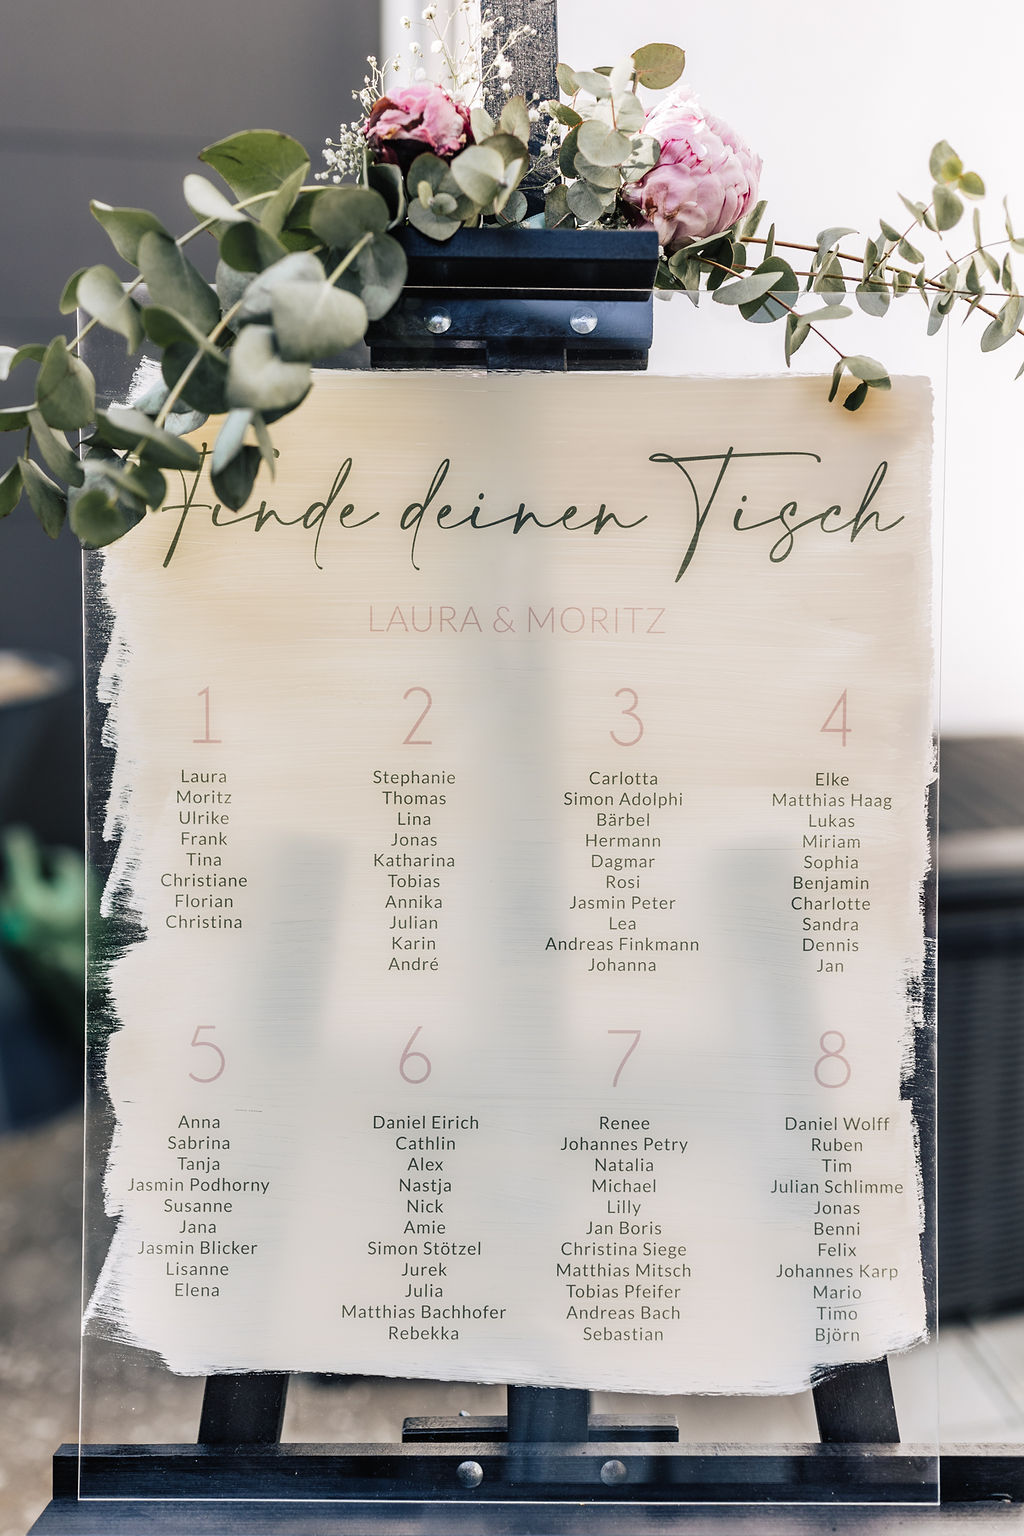 Finde deinen Tisch
LAURA & MORITZ
1
Laura
Moritz
Ulrike
Frank
Tina
Christiane
Florian
Christina
2
Stephanie
Thomas
Lina
Jonas
Katharina
Tobias
Annika
Julian
Karin
André
3
Carlotta
Simon Adolphi
Bärbel
Hermann
Dagmar
Rosi
Jasmin Peter
Lea
Andreas Finkmann
Johanna
4
Elke
Matthias Haag
Lukas
Miriam
Sophia
Benjamin
Charlotte
Sandra
Dennis
Jan
5
Anna
Sabrina
Tanja
Jasmin Podhorny
Susanne
Jana
Jasmin Blicker
Lisanne
Elena
6
Daniel Eirich
Cathlin
Alex
Nastja
Nick
Amie
Simon Stötzel
Jurek
Julia
Matthias Bachhofer
Rebekka
7
Renee
Johannes Petry
Natalia
Michael
Lilly
Jan Boris
Christina Siege
Matthias Mitsch
Tobias Pfeifer
Andreas Bach
Sebastian
8
Daniel Wolff
Ruben
Tim
Julian Schlimme
Jonas
Benni
Felix
Johannes Karp
Mario
Timo
Björn